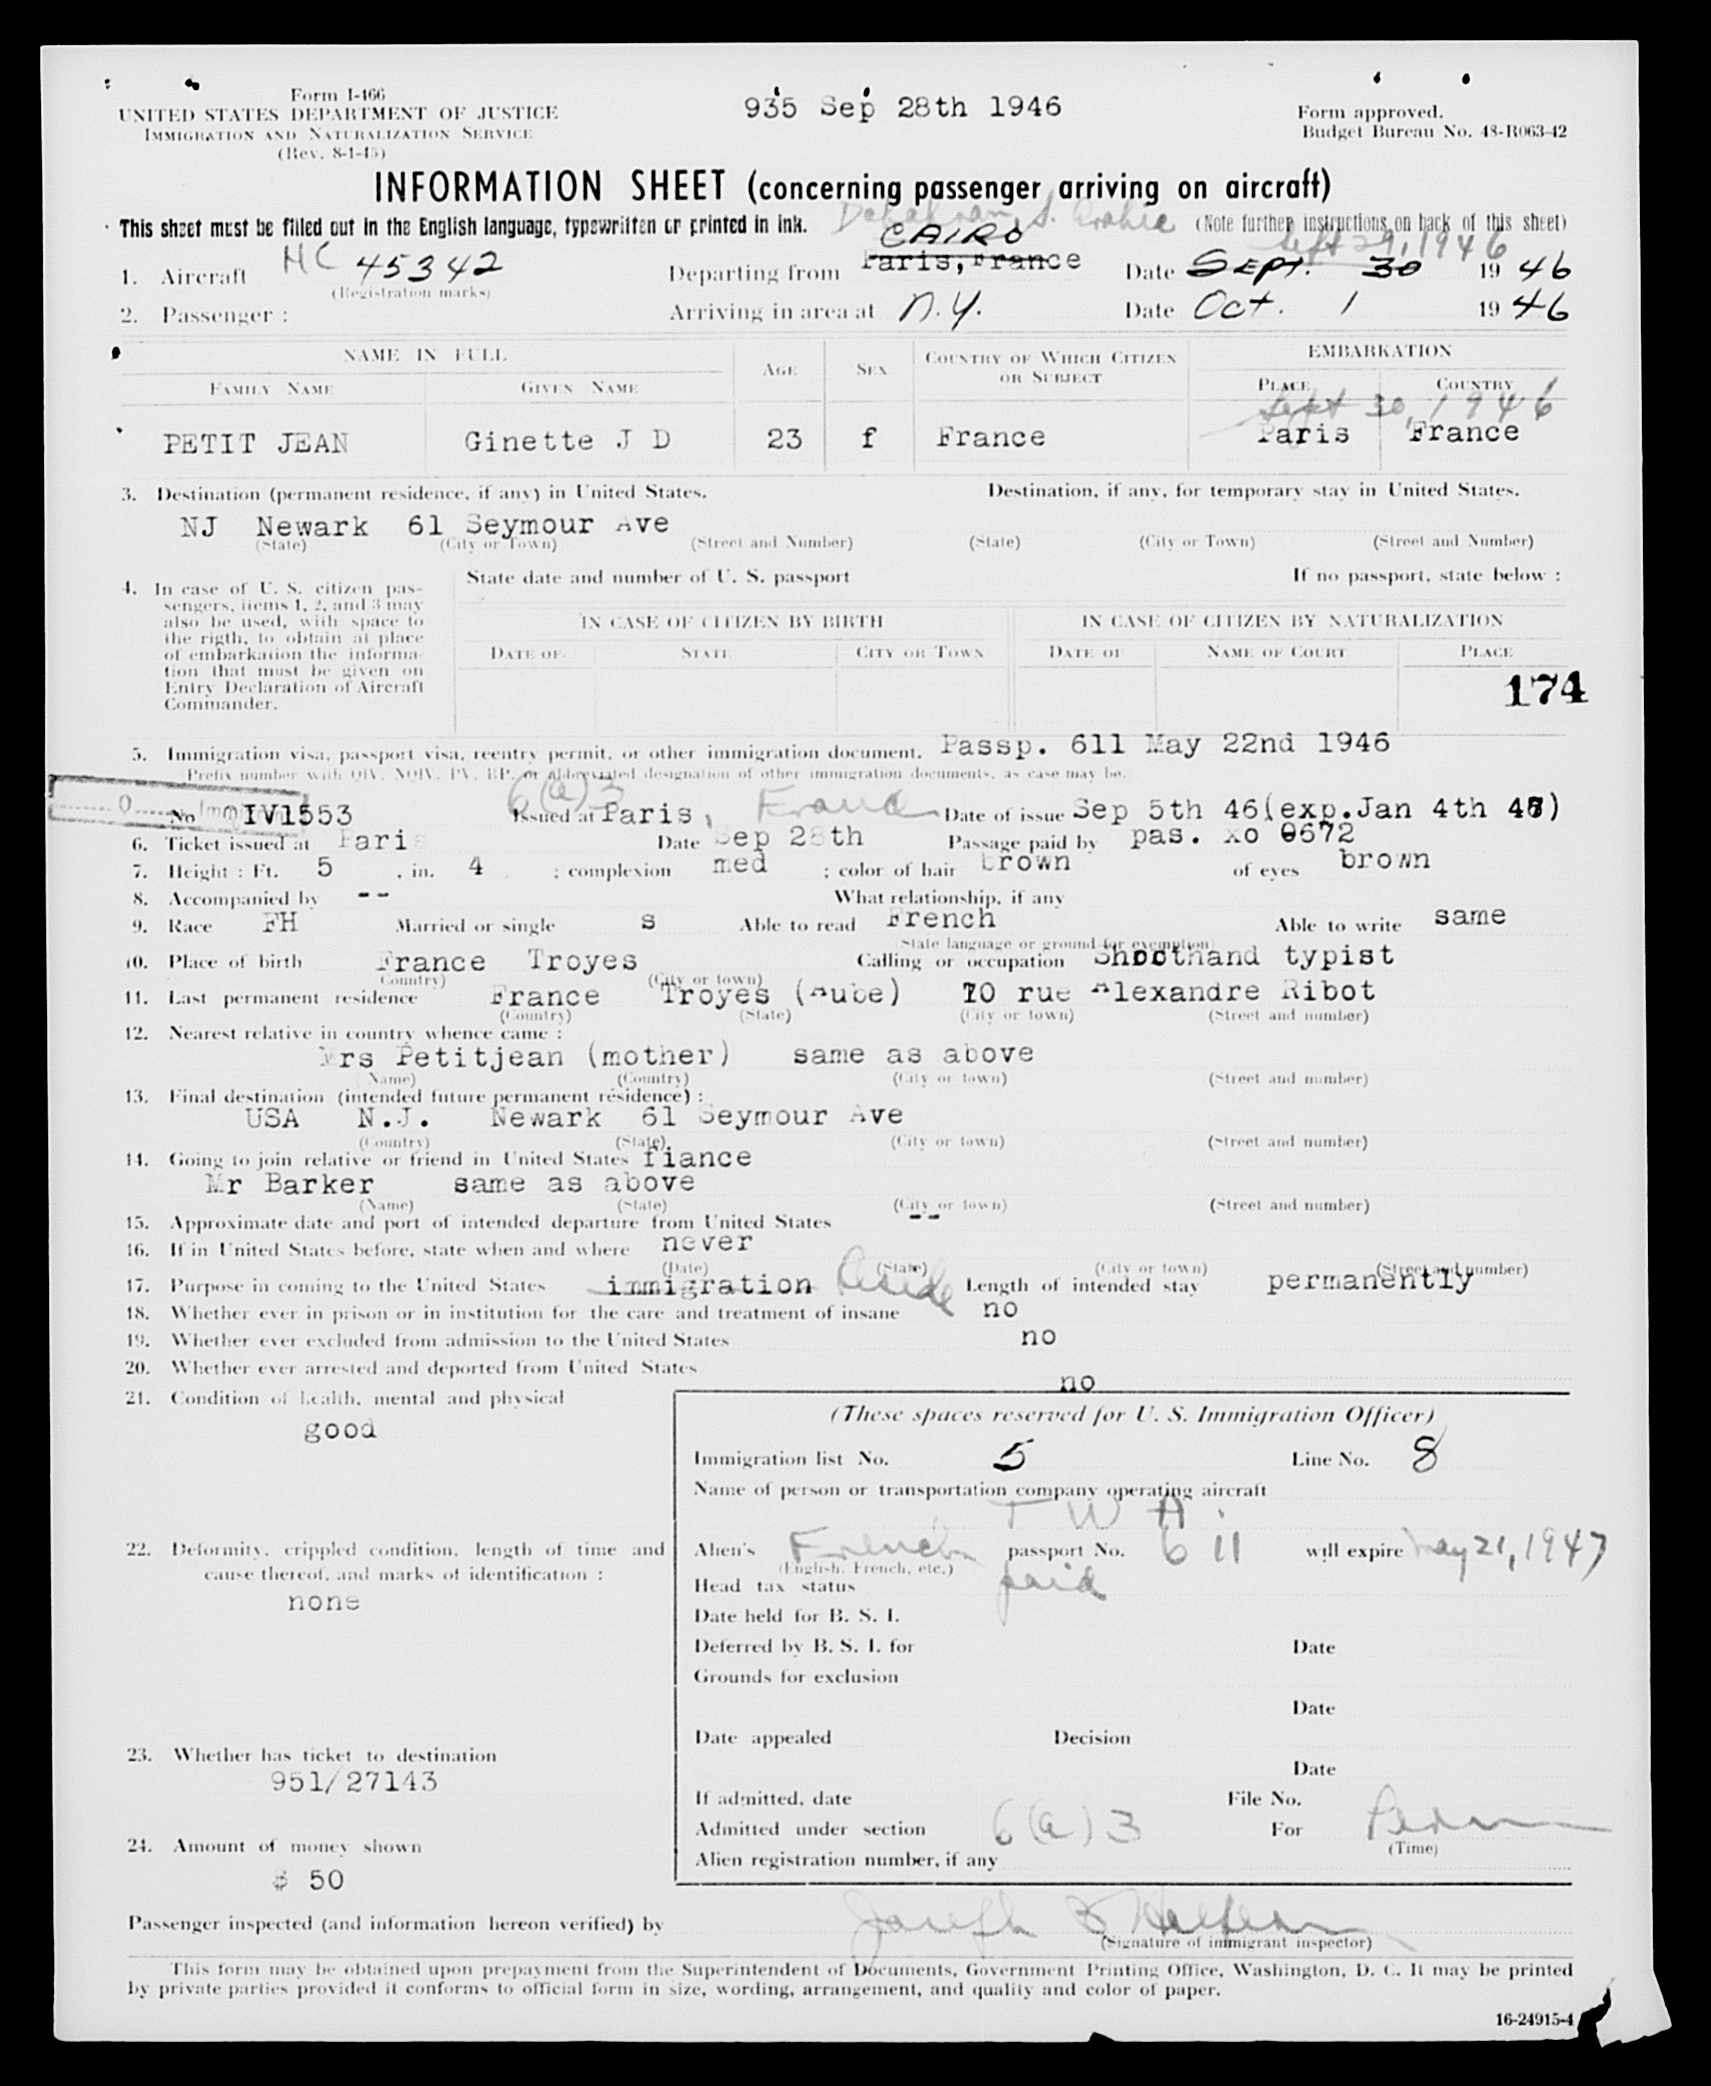 Form I-466
UNITED STATES DEPARTMENT OF JUSTICE
IMMIGRATION AND NATURALIZATION SERVICE
(Rev. 8-1-45)
935 Sep 28th 1946
Form approved.
Budget Bureau No. 43-R063-42
INFORMATION SHEET (concerning passenger arriving on aircraft)
This sheet must be filled out in the English language, typewritten or printed in ink. (Note further instructions on back of this sheet)
Dahahran, S. Arabia
CAIRO Sept 29, 1946
1. Aircraft NC 45342 Departing from Paris, France Date SEPT. 30 1946
(Registration marks)
2. Passenger : Arriving in area at N.Y. Date Oct. 1 1946
NAME IN FULL AGE SEX COUNTRY OF WHICH CITIZEN OR SUBJECT EMBARKATION
FAMILY NAME GIVEN NAME PLACE COUNTRY
Sept 30, 1946
PETIT JEAN Ginette J D 23 f France Paris France
3. Destination (permanent residence, if any) in United States. Destination, if any, for temporary stay in United States.
NJ Newark 61 Seymour Ave
(State) (City or Town) (Street and Number) (State) (City or Town) (Street and Number)
4. In case of U. S. citizen pas-
sengers, items 1, 2, and 3 may
also be used, with space to
the rigth, to obtain at place
of embarkation the informa-
tion that must be given on
Entry Declaration of Aircraft
Commander.
State date and number of U. S. passport If no passport, state below :
IN CASE OF CITIZEN BY BIRTH IN CASE OF CITIZEN BY NATURALIZATION
DATE OF STATE CITY OR TOWN DATE OF NAME OF COURT PLACE
174
5. Immigration visa, passport visa, reentry permit, or other immigration document. Passp. 611 May 22nd 1946
Prefix number with QIV, NQIV, PV, RP, or abbreviated designation of other immigration documents, as case may be.
6(a)3
No QIV1553 Issued at Paris, France Date of issue Sep 5th 46(exp.Jan 4th 47)
6. Ticket issued at Paris Date Sep 28th Passage paid by pas. xo 0672
7. Height : Ft. 5 . in. 4 ; complexion med ; color of hair brown of eyes brown
8. Accompanied by -- What relationship, if any
9. Race FH Married or single s Able to read French Able to write same
(State language or ground for exemption)
10. Place of birth France Troyes Calling or occupation Shorthand typist
(Country) (City or town)
11. Last permanent residence France Troyes (Aube) 10 rue Alexandre Ribot
(Country) (State) (City or town) (Street and number)
12. Nearest relative in country whence came :
Mrs Petitjean (mother) same as above
(Name) (Country) (City or town) (Street and number)
13. Final destination (intended future permanent residence) :
USA N.J. Newark 61 Seymour Ave
(Country) (State) (City or town) (Street and number)
14. Going to join relative or friend in United States fiance
Mr Barker same as above
(Name) (State) (City or town) (Street and number)
15. Approximate date and port of intended departure from United States --
16. If in United States before, state when and where never
(Date) (State) (City or town) (Street and number)
17. Purpose in coming to the United States immigration Reside Length of intended stay permanently
18. Whether ever in prison or in institution for the care and treatment of insane no
19. Whether ever excluded from admission to the United States no
20. Whether ever arrested and deported from United States no
21. Condition of health, mental and physical
good
22. Deformity, crippled condition, length of time and
cause thereof, and marks of identification :
none
23. Whether has ticket to destination
951/27143
24. Amount of money shown
$ 50
(These spaces reserved for U. S. Immigration Officer)
Immigration list No. 5 Line No. 8
Name of person or transportation company operating aircraft
T W A.
Alien's French passport No. 611 will expire May 21, 1947
(English, French, etc.)
Head tax status paid
Date held for B. S. I.
Deferred by B. S. I. for Date
Grounds for exclusion
Date
Date appealed Decision
Date
If admitted, date File No.
Admitted under section 6(a)3 For Perm
(Time)
Alien registration number, if any
Passenger inspected (and information hereon verified) by Joseph
(Signature of immigrant inspector)
This form may be obtained upon prepayment from the Superintendent of Documents, Government Printing Office, Washington, D. C. It may be printed
by private parties provided it conforms to official form in size, wording, arrangement, and quality and color of paper.
16-24915-4